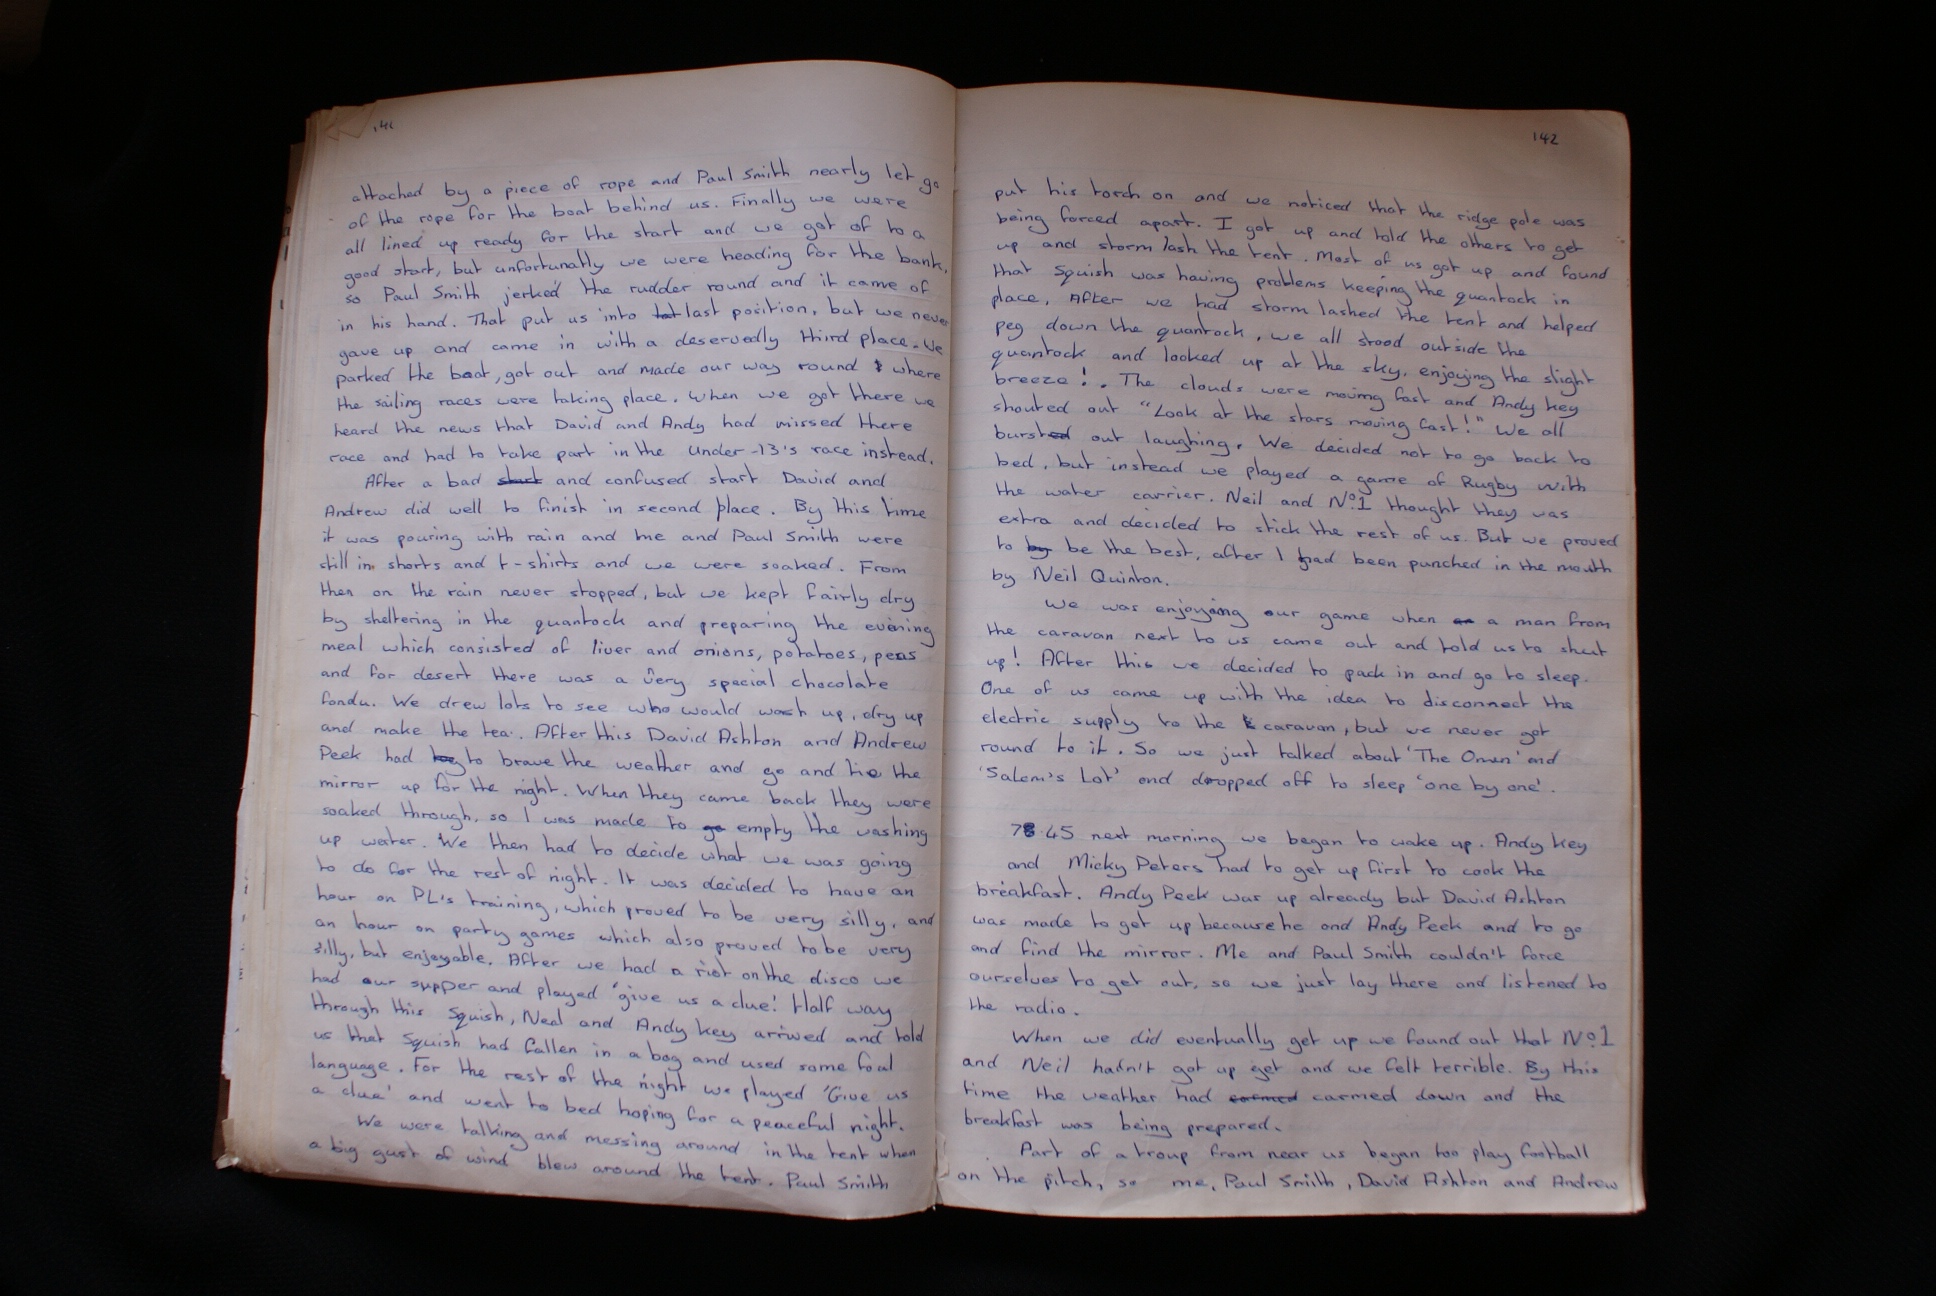 141
attached by a piece of rope and Paul Smith nearly let go
of the rope for the boat behind us. Finally we were
all lined up ready for the start and we got of to a
good start, but unfortunatly we were heading for the bank,
so Paul Smith jerked the rudder round and it came of
in his hand. That put us into last position, but we never
gave up and came in with a deservedly third place. We
parked the boat, got out and made our way round where
the sailing races were taking place. When we got there we
heard the news that David and Andy had missed there
race and had to take part in the under-13's race instead.
After a bad start and confused start David and
Andrew did well to finish in second place. By this time
it was pouring with rain and me and Paul Smith were
still in shorts and t-shirts and we were soaked. From
then on the rain never stopped, but we kept fairly dry
by sheltering in the quantock and preparing the evening
meal which consisted of liver and onions, potatoes, peas
and for desert there was a very special chocolate
fondu. We drew lots to see who would wash up, dry up
and make the tea. After this David Ashton and Andrew
Peek had to brave the weather and go and tie the
mirror up for the night. When they came back they were
soaked through, so I was made to go empty the washing
up water. We then had to decide what we was going
to do for the rest of night. It was decided to have an
hour on PL's training, which proved to be very silly, and
an hour on party games which also proved to be very
silly, but enjoyable. After we had a riot on the disco we
had our supper and played 'give us a clue! Half way
through this Squish, Neal and Andy key arrived and told
us that Squish had fallen in a bog and used some foul
language. For the rest of the night we played 'Give us
a clue' and went to bed hoping for a peaceful night.
We were talking and messing around in the tent when
a big gust of wind blew around the tent. Paul Smith
142
put his torch on and we noticed that the ridge pole was
being forced apart. I got up and told the others to get
up and storm lash the tent. Most of us got up and found
that Squish was having problems keeping the quantock in
place. After we had storm lashed the tent and helped
peg down the quantock, we all stood outside the
quantock and looked up at the sky, enjoying the slight
breeze!. The clouds were moving fast and Andy key
shouted out "Look at the stars moving fast!" We all
bursted out laughing. We decided not to go back to
bed, but instead we played a game of Rugby with
the water carrier. Neil and Nº1 thought they was
extra and decided to stick the rest of us. But we proved
to by be the best, after I had been punched in the mouth
by Neil Quinton.
We was enjoying our game when a man from
the caravan next to us came out and told us to shut
up! After this we decided to pack in and go to sleep.
One of us came up with the idea to disconnect the
electric supply to the caravan, but we never got
round to it. So we just talked about 'The Omen' and
'Salem's Lot' and dropped off to sleep 'one by one'.
78.45 next morning we began to wake up. Andy key
and Micky Peters had to get up first to cook the
breakfast. Andy Peek was up already but David Ashton
was made to get up because he and Andy Peek and to go
and find the mirror. Me and Paul Smith couldn't force
ourselves to get out, so we just lay there and listened to
the radio.
When we did eventually get up we found out that Nº1
and Neil hadn't got up yet and we felt terrible. By this
time the weather had carmed down and the
breakfast was being prepared.
Part of a troup from near us began too play football
on the pitch, so me, Paul Smith, David Ashton and Andrew